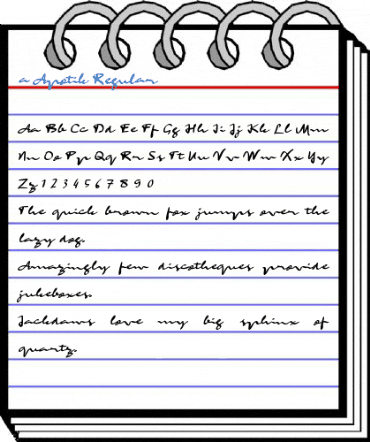 a Apotik Regular
Aa Bb Cc Dd Ee Ff Gg Hh Ii Jj Kk Ll Mm
Nn Oo Pp Qq Rr Ss Tt Uu Vv Ww Xx Yy
Zz 1 2 3 4 5 6 7 8 9 0
The quick brown fox jumps over the
lazy dog.
Amazingly few discotheques provide
jukeboxes.
Jackdaws love my big sphinx of
quartz.